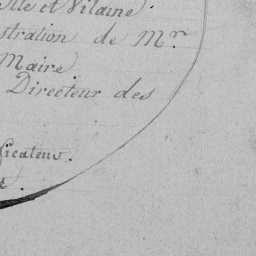 Ille et Vilaine.
stration de Mr.
Maire
Directeur des
ficateur.